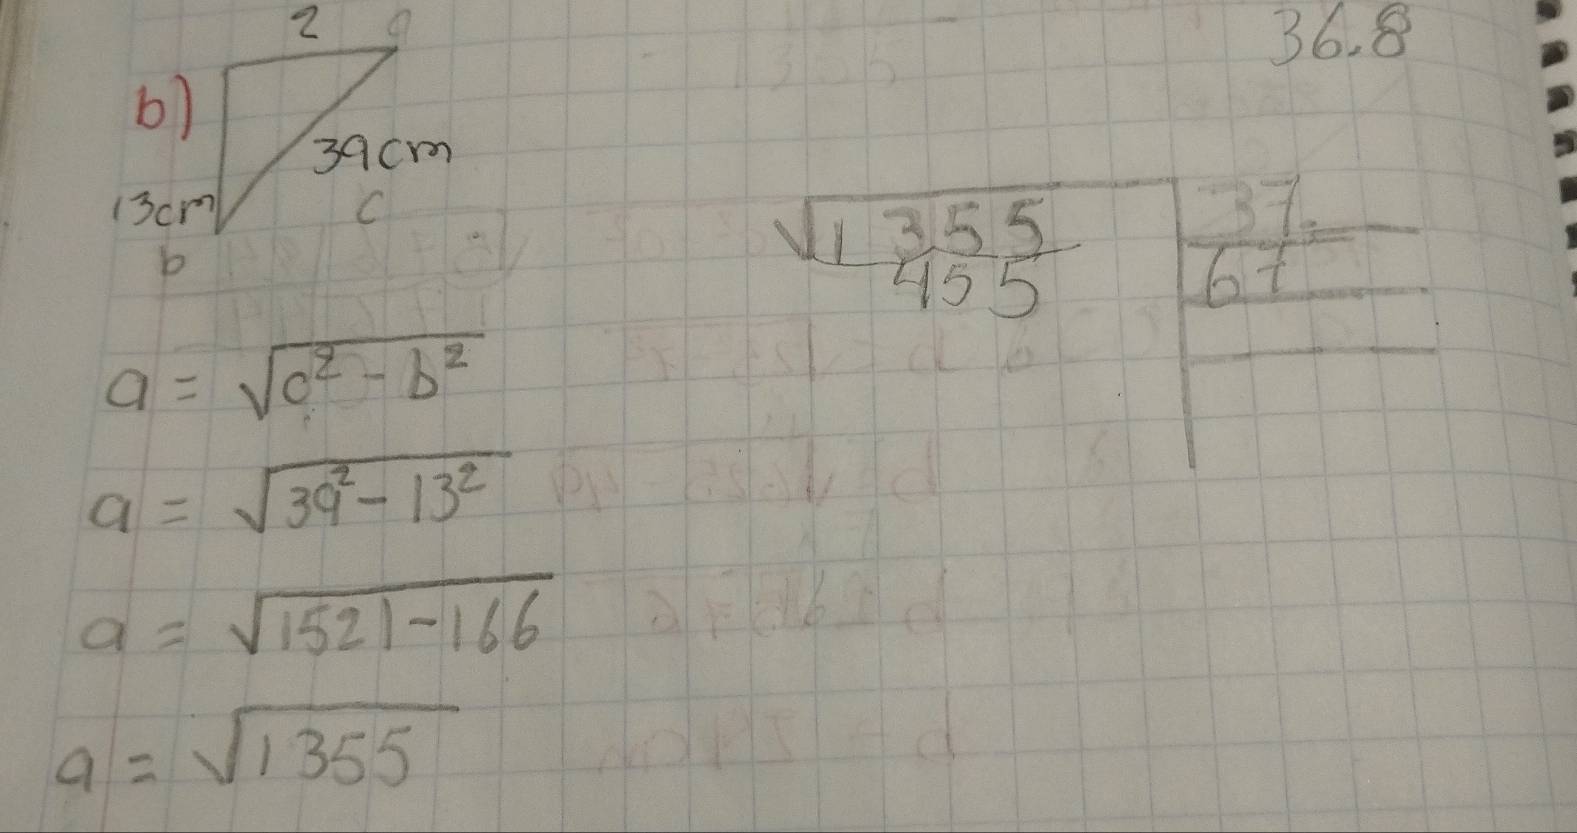 2 a
36.8
b)
39cm
13cm
c
b
√1355 37.
455 67
a = √c² - b²
a = √39² - 13²
a = √1521 - 166
a = √1355